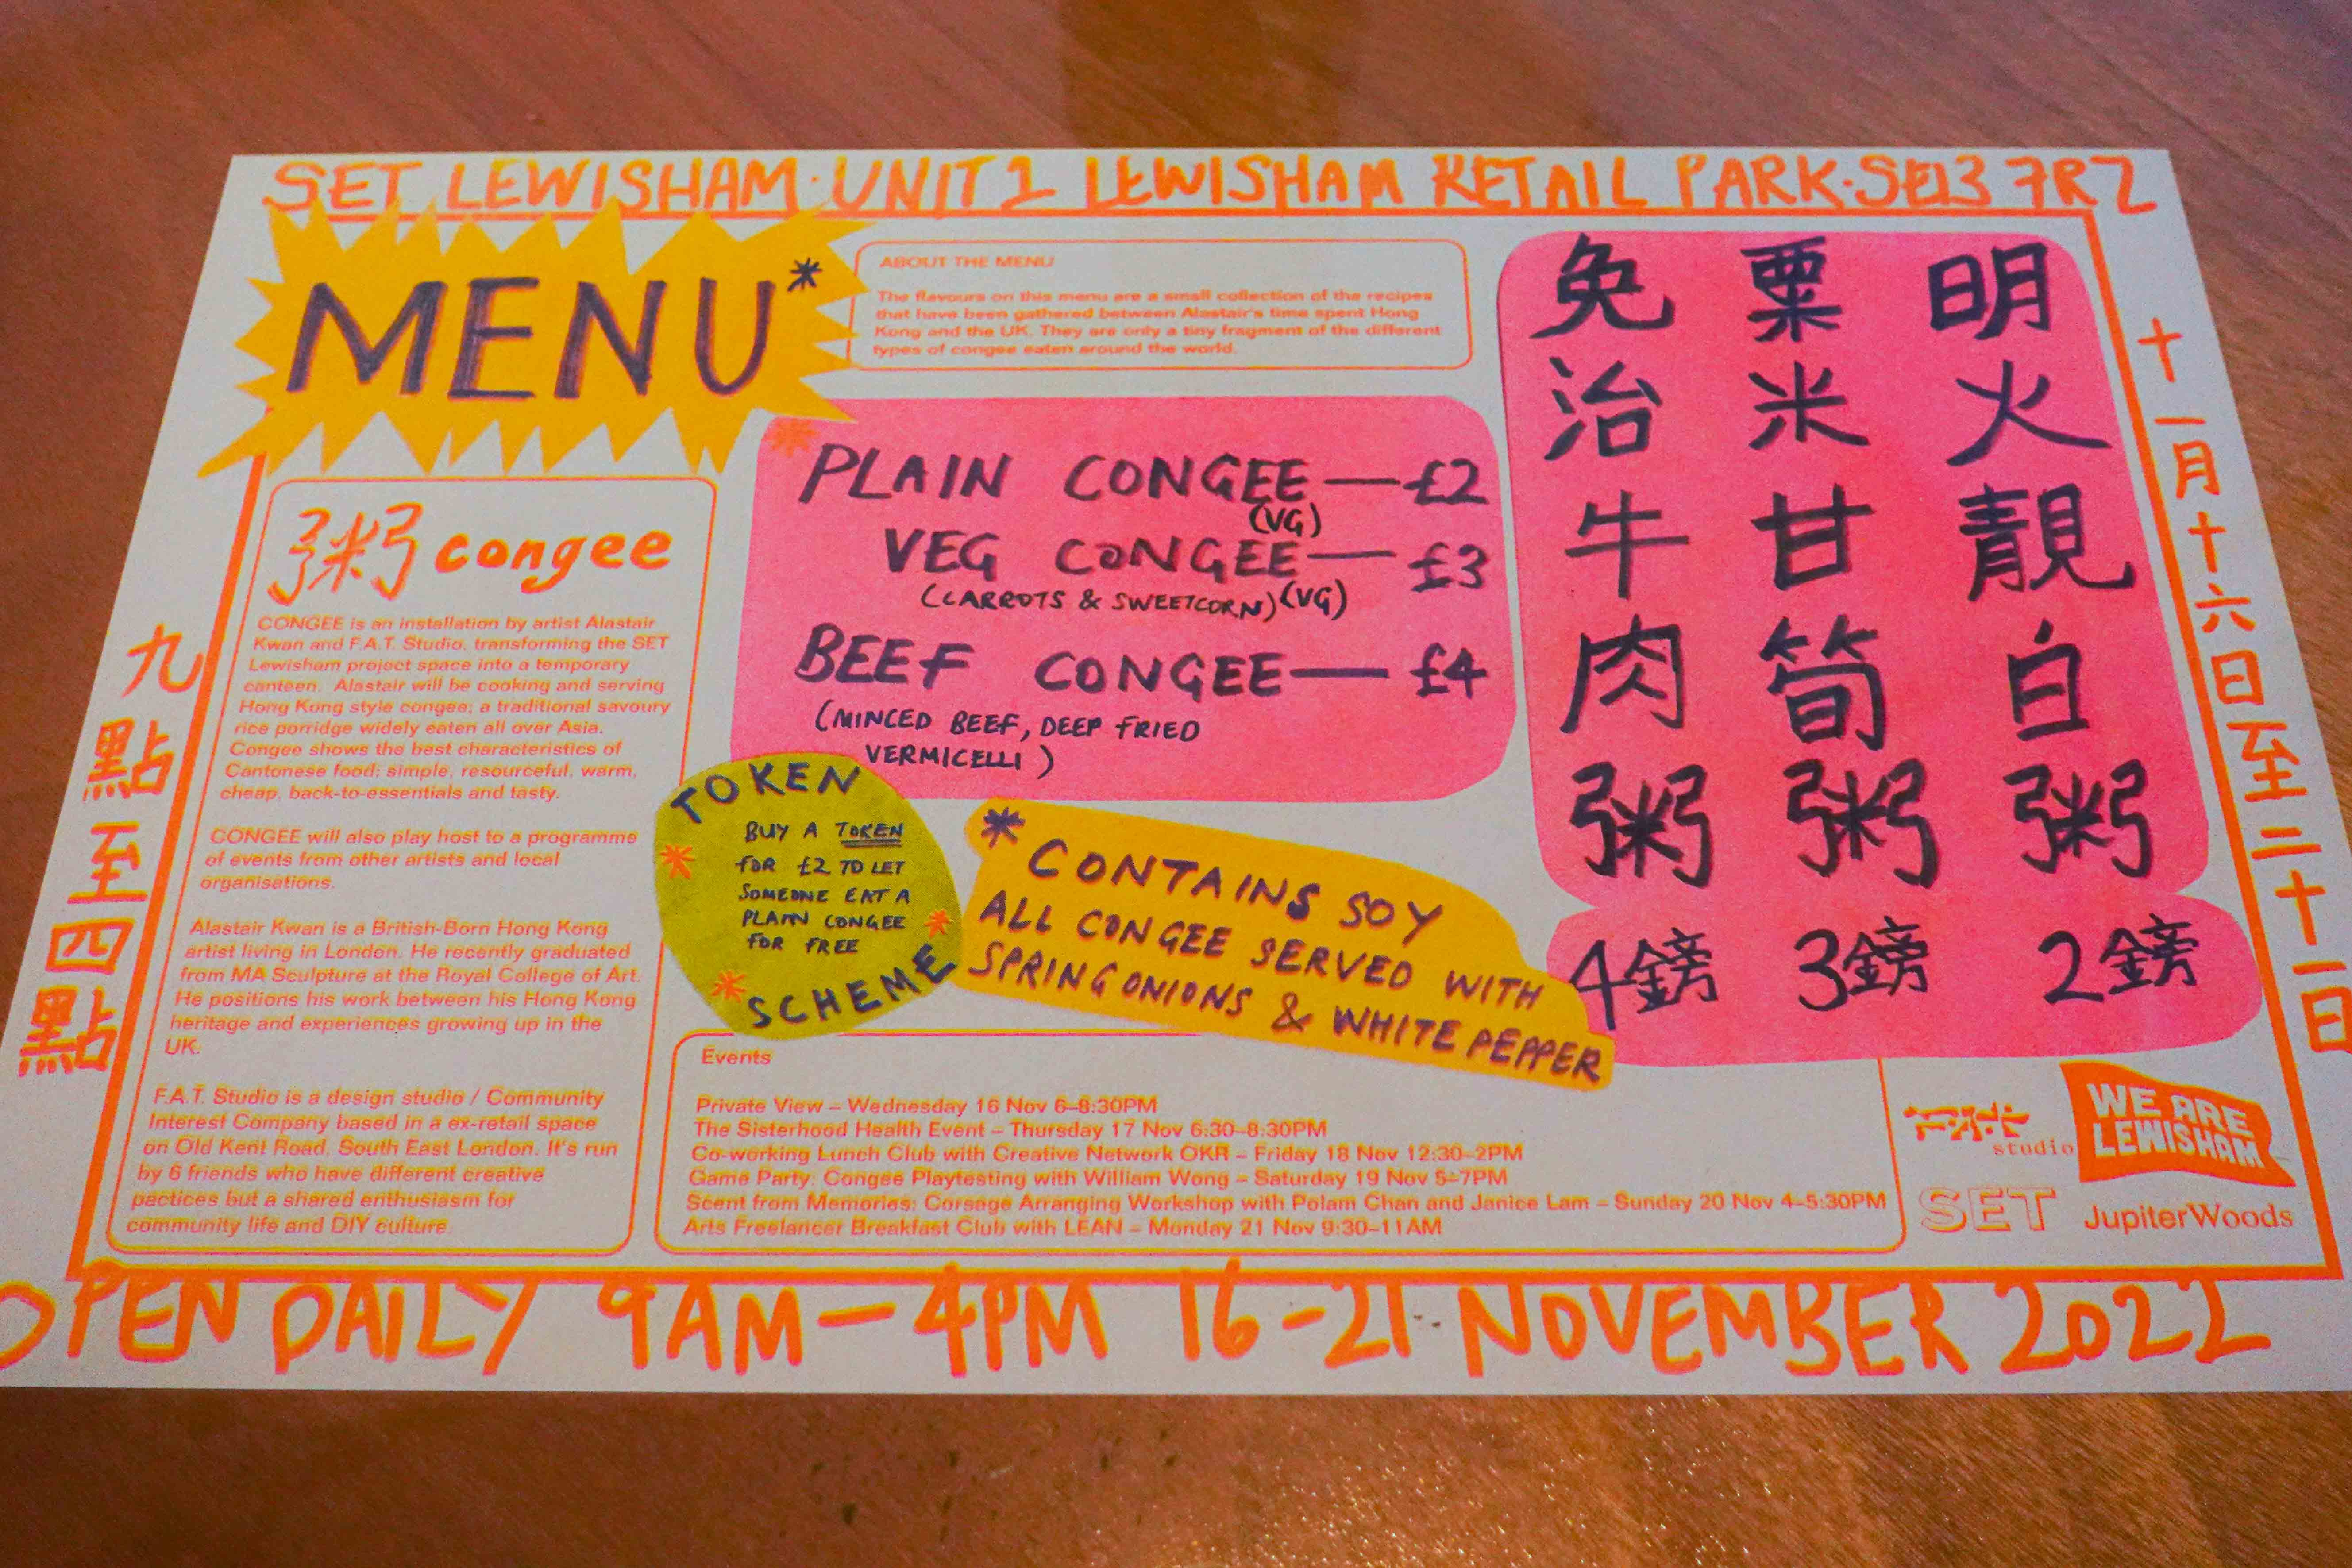 SET LEWISHAM · UNIT 1 LEWISHAM RETAIL PARK · SE13 7RZ
MENU*
ABOUT THE MENU
The flavours on this menu are a small collection of the recipes
that have been gathered between Alastair's time spent Hong
Kong and the UK. They are only a tiny fragment of the different
types of congee eaten around the world.
粥 congee
CONGEE is an installation by artist Alastair
Kwan and F.A.T. Studio, transforming the SET
Lewisham project space into a temporary
canteen. Alastair will be cooking and serving
Hong Kong style congee; a traditional savoury
rice porridge widely eaten all over Asia.
Congee shows the best characteristics of
Cantonese food: simple, resourceful, warm,
cheap, back-to-essentials and tasty.
CONGEE will also play host to a programme
of events from other artists and local
organisations.
Alastair Kwan is a British-Born Hong Kong
artist living in London. He recently graduated
from MA Sculpture at the Royal College of Art.
He positions his work between his Hong Kong
heritage and experiences growing up in the
UK.
F.A.T. Studio is a design studio / Community
Interest Company based in a ex-retail space
on Old Kent Road, South East London. It's run
by 6 friends who have different creative
pactices but a shared enthusiasm for
community life and DIY culture.
PLAIN CONGEE — £2
(VG)
VEG CONGEE — £3
(CARROTS & SWEETCORN) (VG)
BEEF CONGEE — £4
(MINCED BEEF, DEEP FRIED
VERMICELLI)
TOKEN
BUY A TOKEN
FOR £2 TO LET
SOMEONE EAT A
PLAIN CONGEE
FOR FREE
SCHEME
*CONTAINS SOY
ALL CONGEE SERVED WITH
SPRING ONIONS & WHITE PEPPER
明火靚白粥
2鎊
粟米甘筍粥
3鎊
免治牛肉粥
4鎊
Events
Private View – Wednesday 16 Nov 6–8:30PM
The Sisterhood Health Event – Thursday 17 Nov 6:30–8:30PM
Co-working Lunch Club with Creative Network OKR – Friday 18 Nov 12:30–2PM
Game Party: Congee Playtesting with William Wong – Saturday 19 Nov 5–7PM
Scent from Memories: Corsage Arranging Workshop with Polam Chan and Janice Lam – Sunday 20 Nov 4–5:30PM
Arts Freelancer Breakfast Club with LEAN – Monday 21 Nov 9:30–11AM
studio
WE ARE
LEWISHAM
SET
JupiterWoods
十一月十六日至二十一日
九點至四點
OPEN DAILY 9AM – 4PM 16–21 NOVEMBER 2022